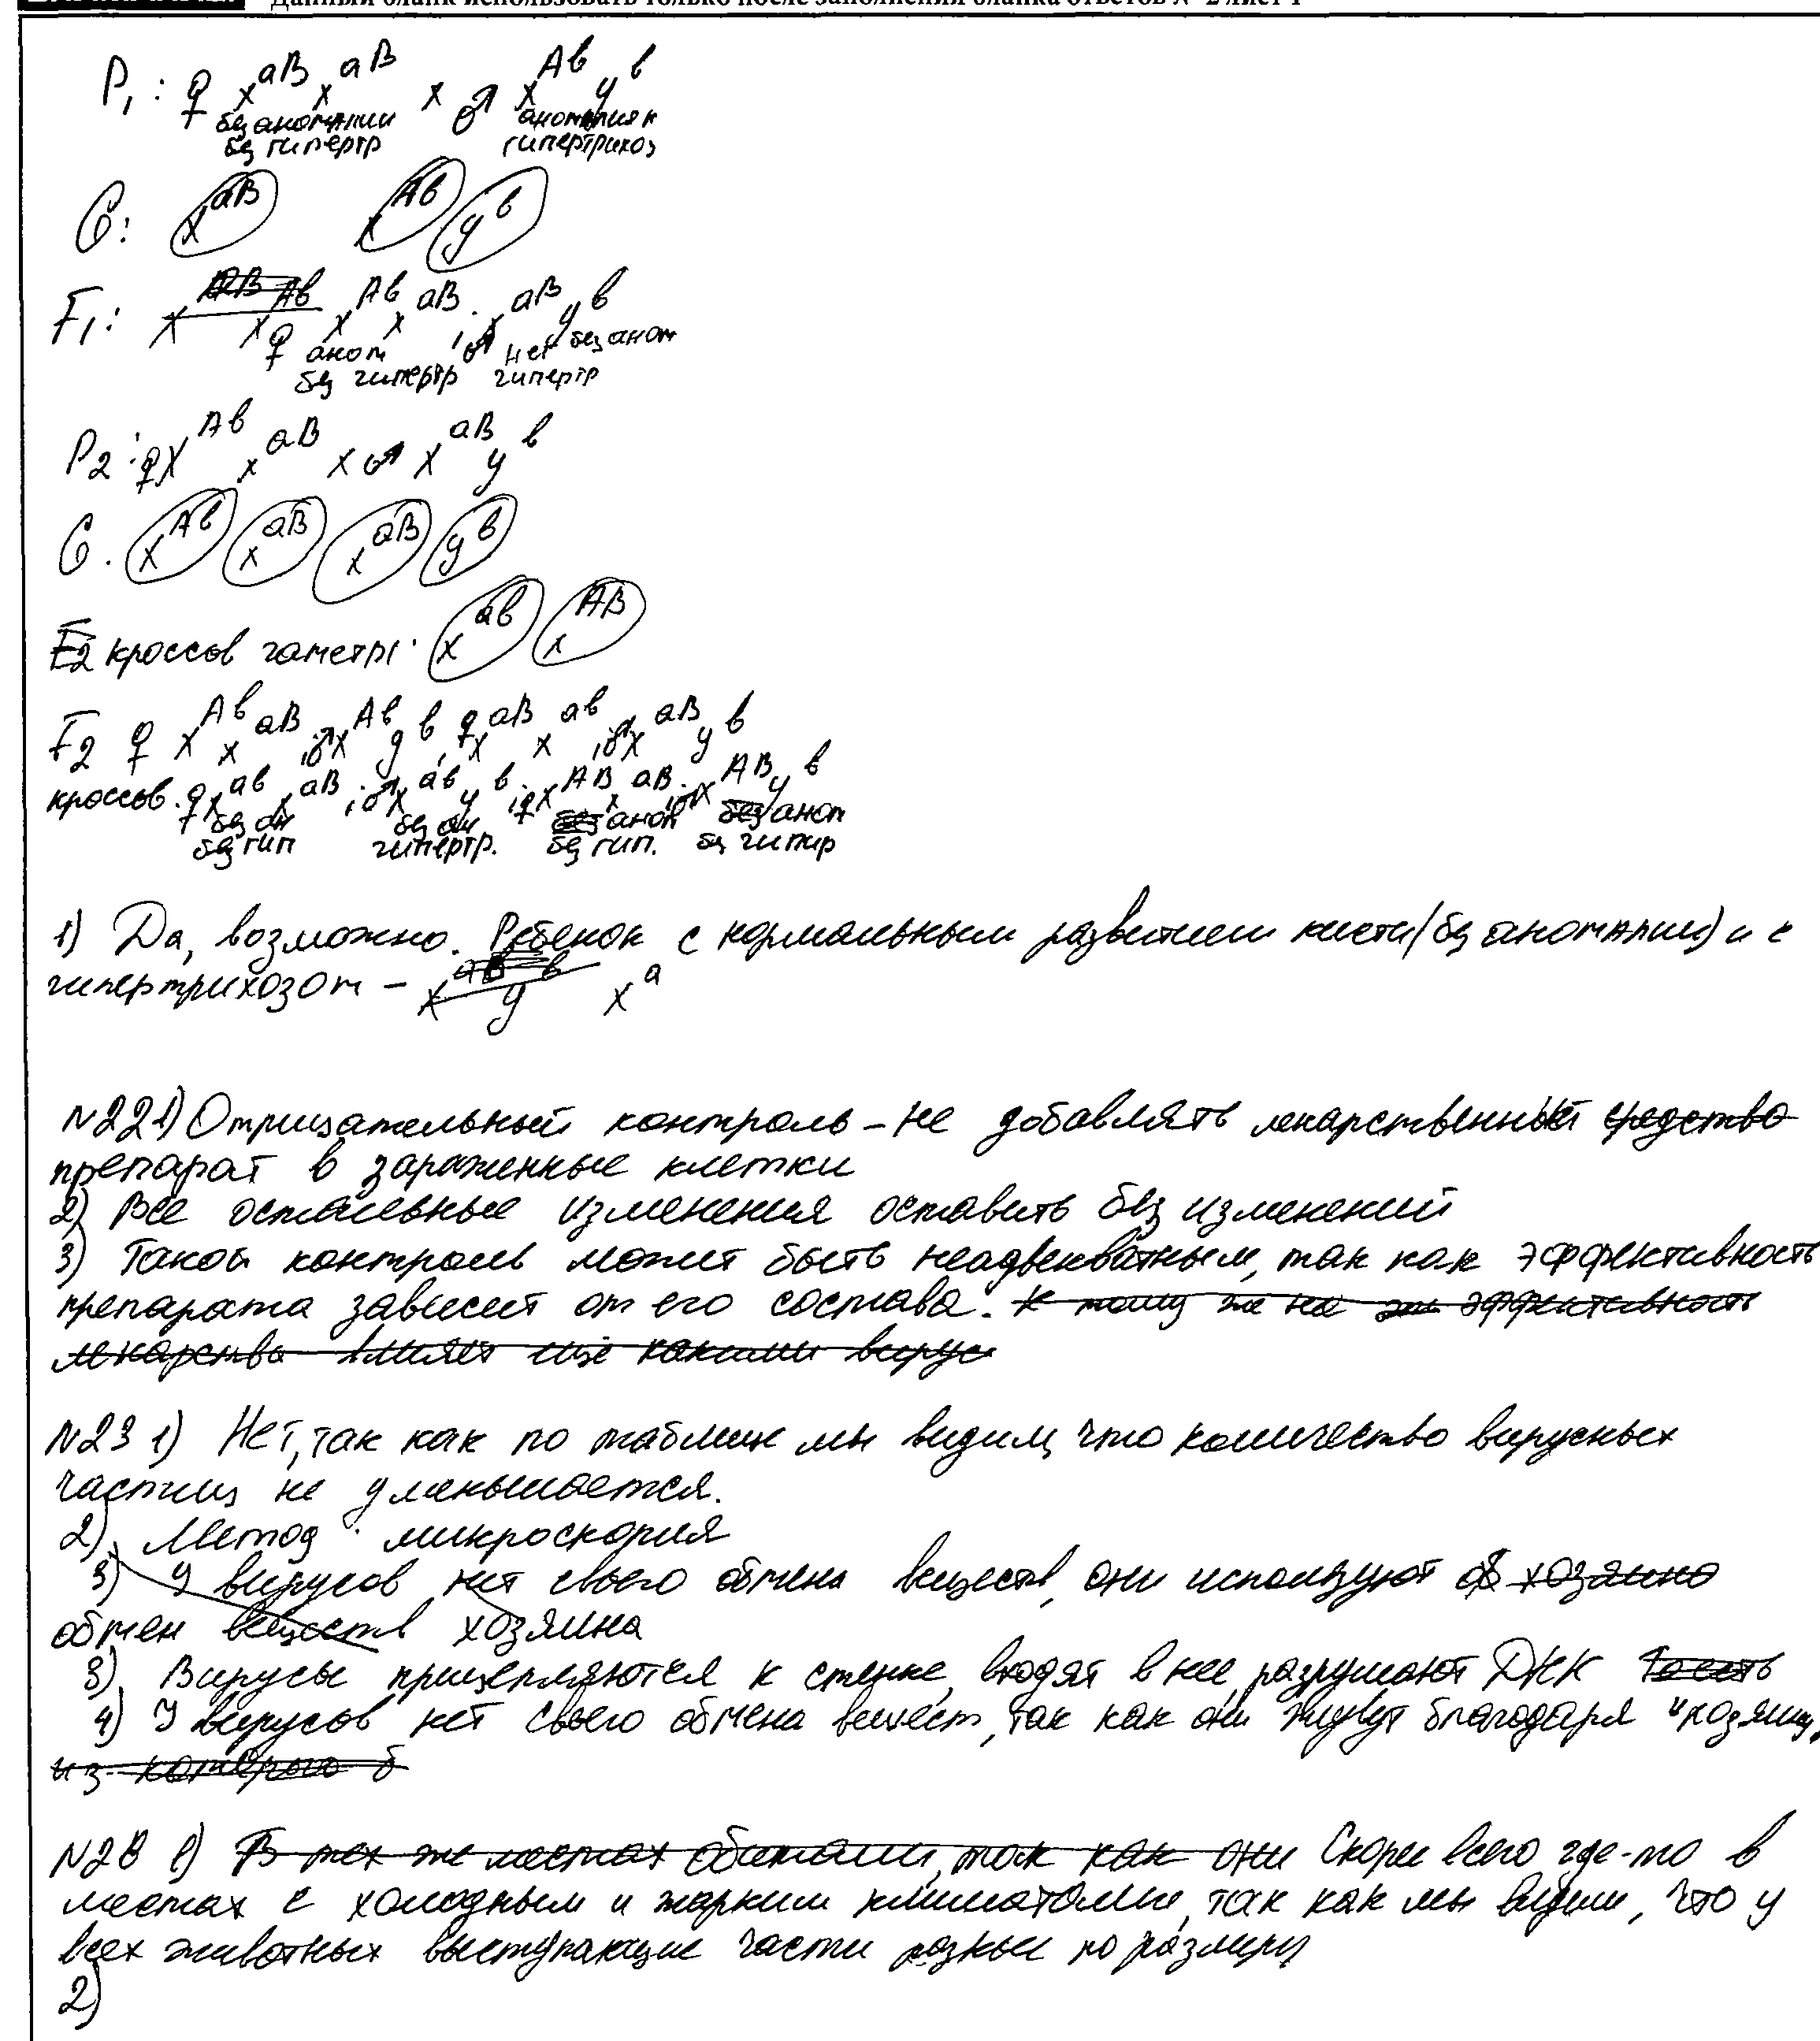 Данный бланк использовать только после заполнения бланка ответов № 2 лист 1
P₁: ♀ X^aB X^aB x ♂ X^Ab Y^b
без аномалии аномалия и
без гипертр гипертрихоз
G: X^aB X^Ab Y^b
F₁: ♀ X^Ab X^aB, ♂ X^aB Y^b
аном нет без аном
без гипертр гипертр
P₂: ♀ X^Ab X^aB x ♂ X^aB Y^b
G. X^Ab X^aB X^aB Y^b
F2 кроссов гаметы: X^ab X^AB
F2 ♀ X^Ab X^aB, ♂ X^Ab Y^b, ♀ X^aB X^aB, ♂ X^aB Y^b
кроссов. ♀ X^ab X^aB; ♂ X^ab Y^b; ♀ X^AB X^aB; ♂ X^AB Y^b
без ан без ан анам аном
без гип гипертр. без гип. без гипир
1) Да, возможно. Ребенок с нормальным развитием кисти (без аномалии) и с
гипертрихозом – X^aB Y^b X^a
N22 1) Отрицательный контроль – не добавлять лекарственный средство
препарат в зараженные клетки
2) Все остальные изменения оставить без изменений
3) Такой контроль может быть неадвекватным, так как эффективность
препарата зависит от его состава. К тому же на эффективность
лекарства влияет ещё какими вирус
N23 1) Нет, так как по таблице мы видим, что количество вирусных
частиц не уменьшается.
2) Метод микроскопия
3) У вирусов нет своего обмена веществ, они используют об хозяина
обмен веществ хозяина
3) Вирусы прицепляются к стенке, входят в нее, разрушают ДНК То есть
4) У вирусов нет своего обмена вещест, так как они живут благодаря "хозяину,
из которого б
N28 1) В тех же местах обитании, так как они Скорее всего где-то в
местах с холодным и жарким климатами, так как мы видим, что у
всех животных выступающие части разные по размеру
2)